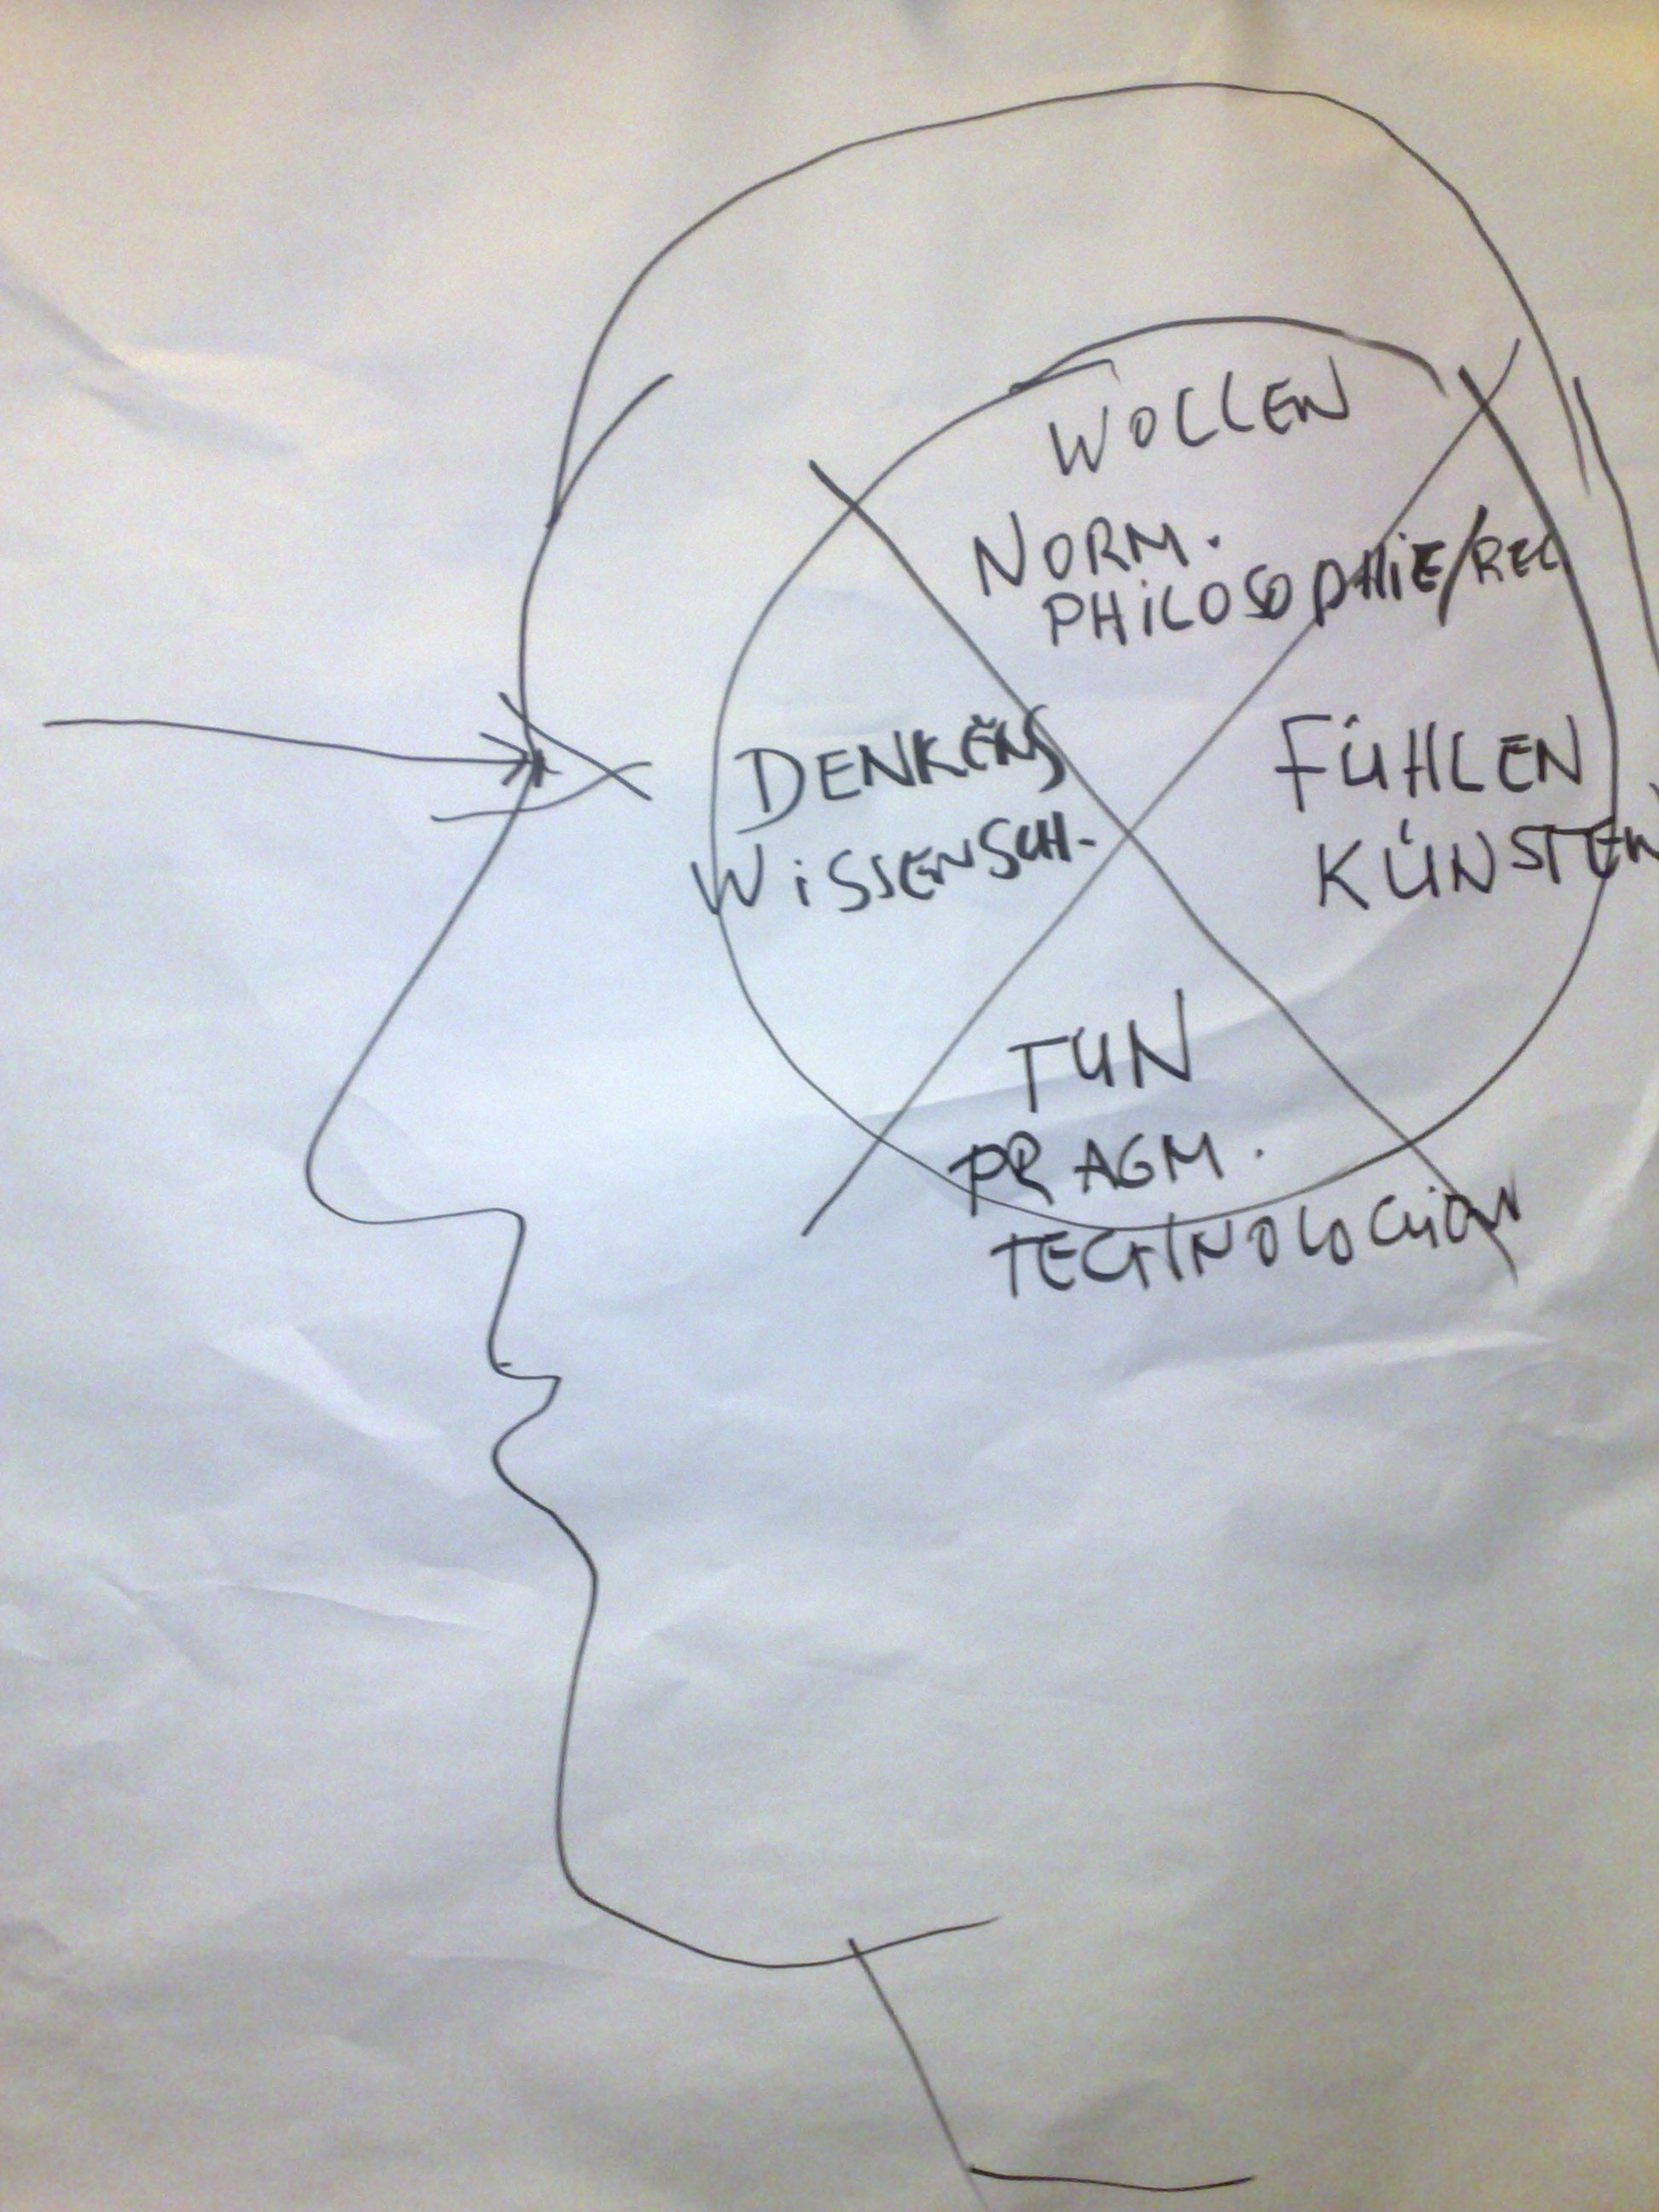 WOLLEN
NORM.
PHILOSOPHIE/REL
DENKEN
WISSENSCH.
FÜHLEN
KÜNSTEN
TUN
PRAGM.
TECHNOLOGIEN